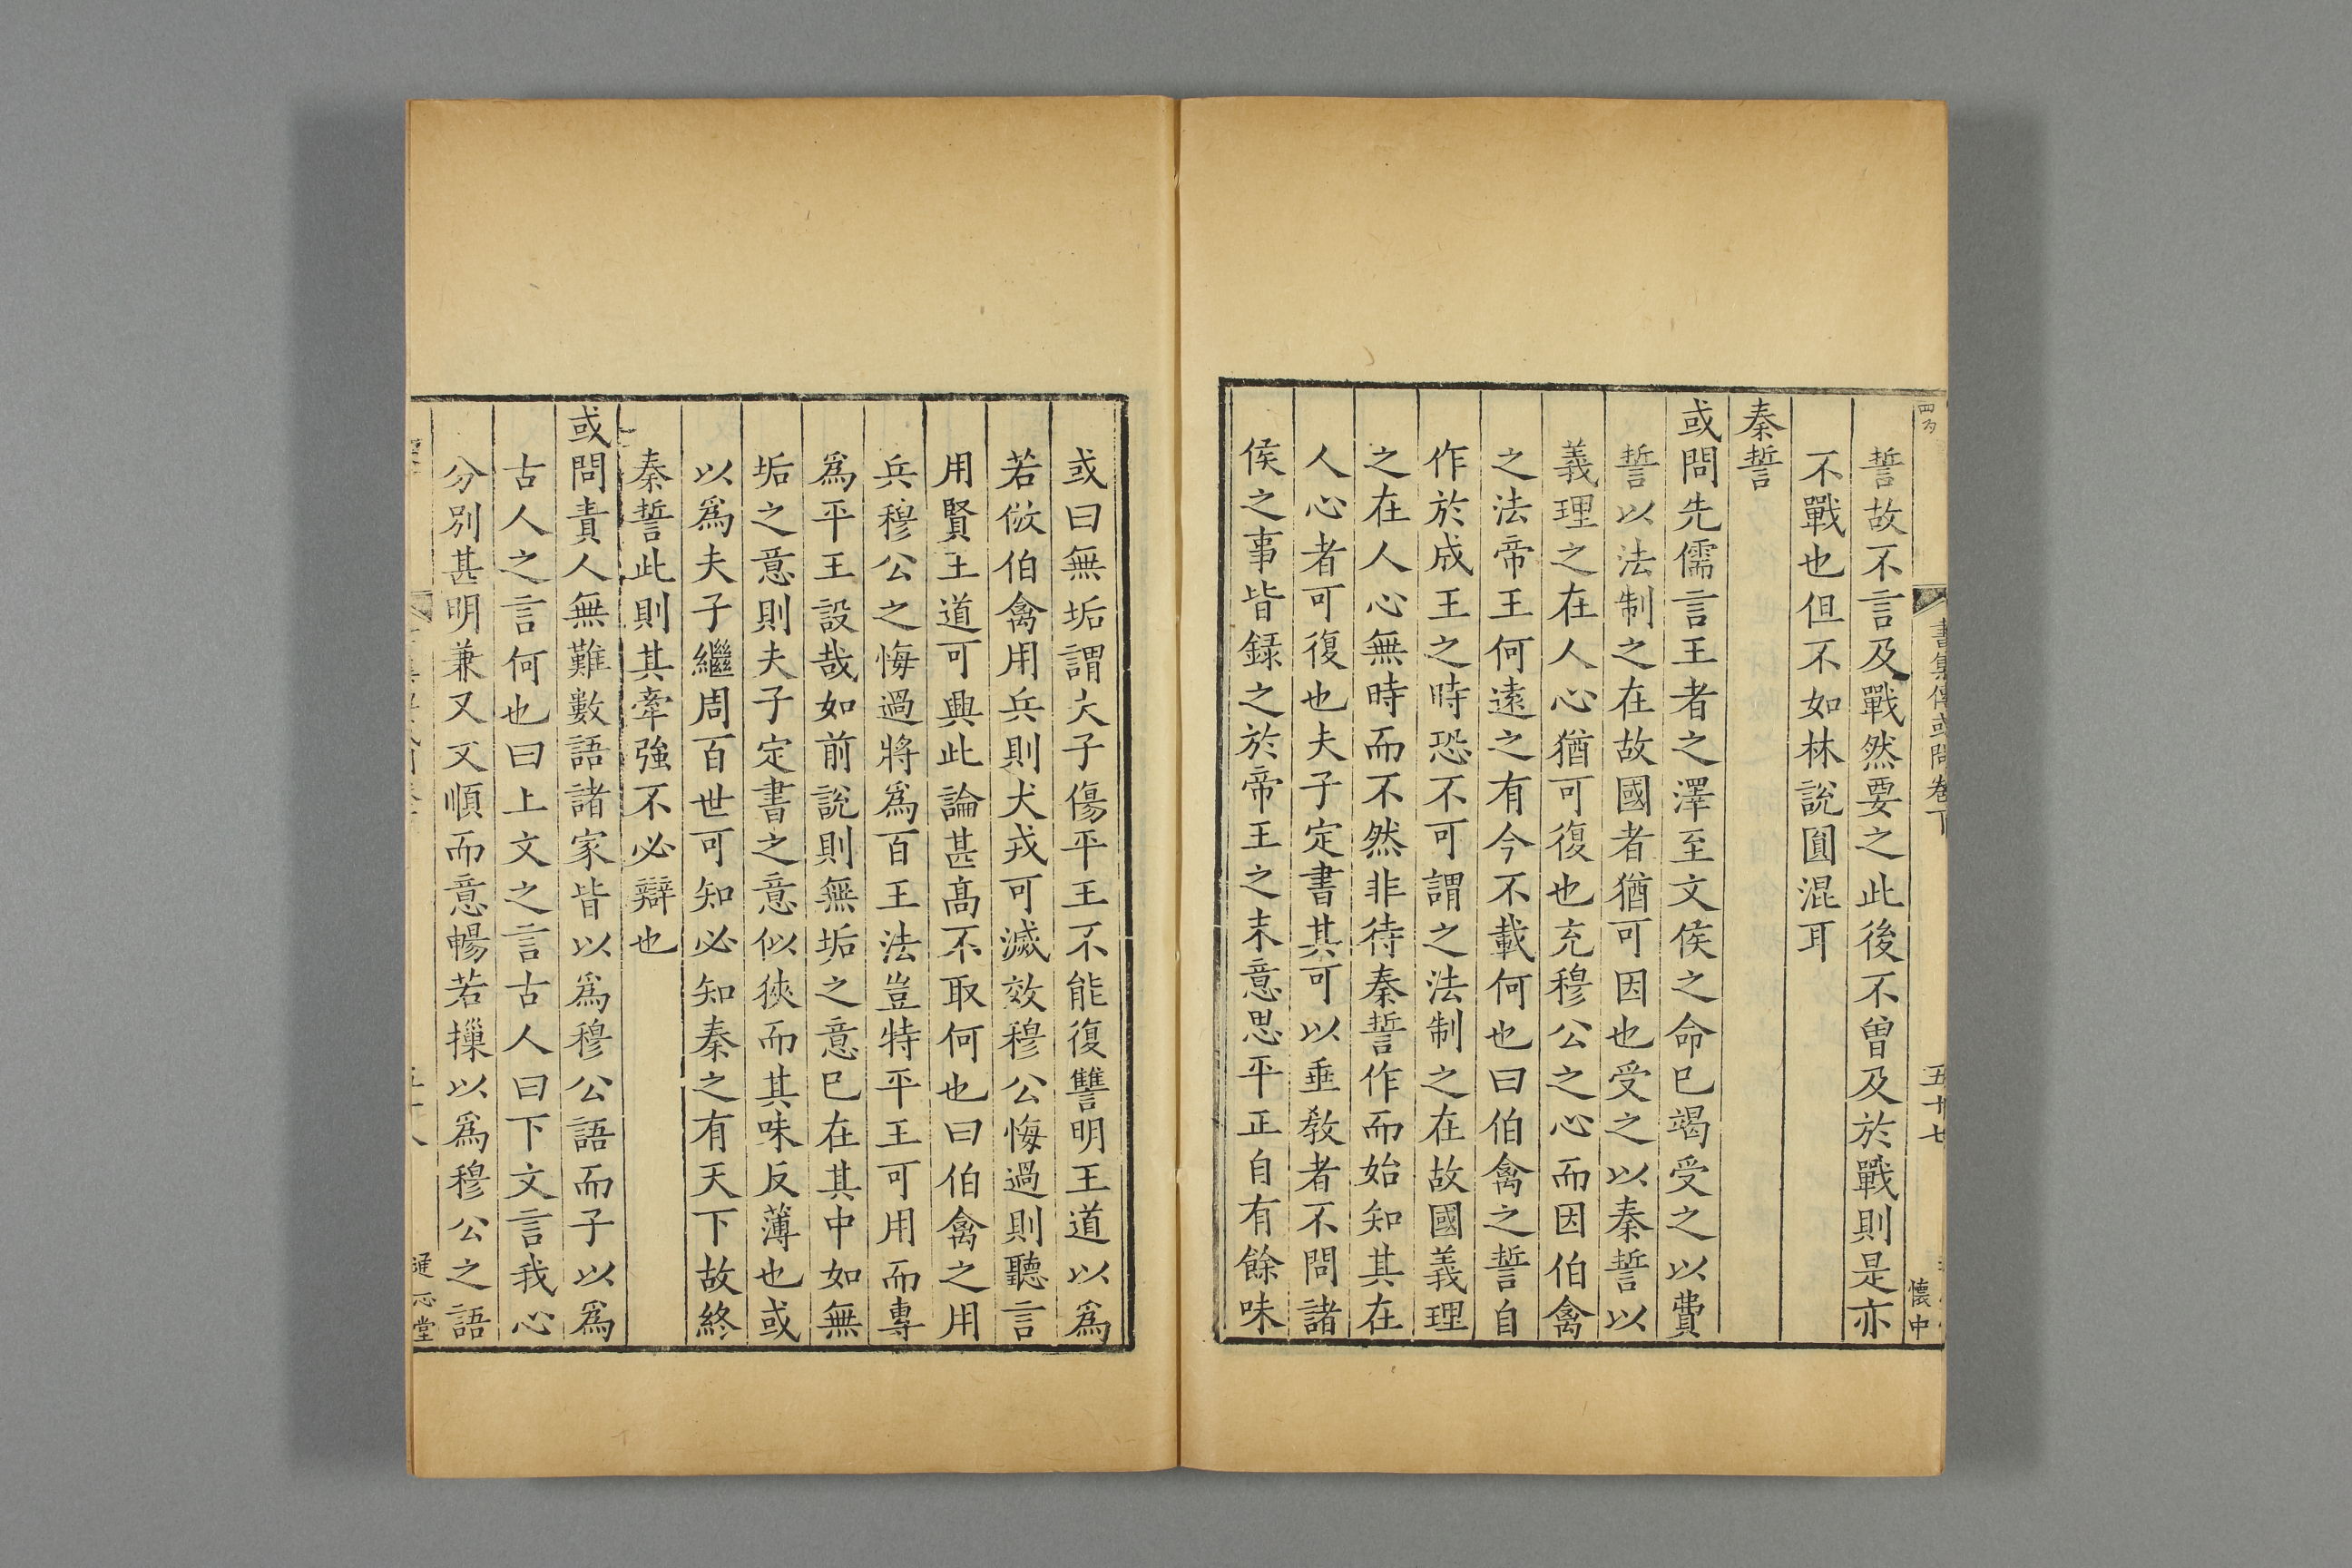 書集傳或問卷下
五十七
懷中
誓故不言及戰然要之此後不曾及於戰則是亦
不戰也但不如林說圓混耳
秦誓
或問先儒言王者之澤至文侯之命已竭受之以費
誓以法制之在故國者猶可因也受之以秦誓以
義理之在人心猶可復也充穆公之心而因伯禽
之法帝王何遠之有今不載何也曰伯禽之誓自
作於成王之時恐不可謂之法制之在故國義理
之在人心無時而不然非待秦誓作而始知其在
人心者可復也夫子定書其可以垂敎者不問諸
侯之事皆録之於帝王之末意思平正自有餘味
或曰無垢謂夫子傷平王不能復讐明王道以爲
若倣伯禽用兵則犬戎可滅效穆公悔過則聽言
用賢王道可興此論甚髙不取何也曰伯禽之用
兵穆公之悔過將爲百王法豈特平王可用而專
爲平王設哉如前說則無垢之意已在其中如無
垢之意則夫子定書之意似狹而其味反薄也或
以爲夫子繼周百世可知必知秦之有天下故終
秦誓此則其牽強不必辯也
或問責人無難數語諸家皆以爲穆公語而子以爲
古人之言何也曰上文之言古人曰下文言我心
分別甚明兼又文順而意暢若攥以爲穆公之語
通志堂